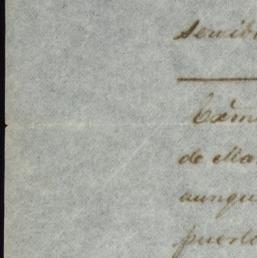 servid
Exmo
de Ma
aunqu
puert